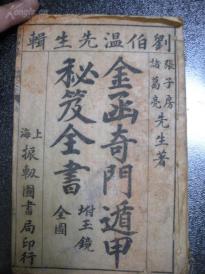 劉伯温先生輯
張子房
諸葛亮
先生著
金函奇門遁甲
秘笈全書
坿玉鏡
全圖
上海
振釰圖書局印行